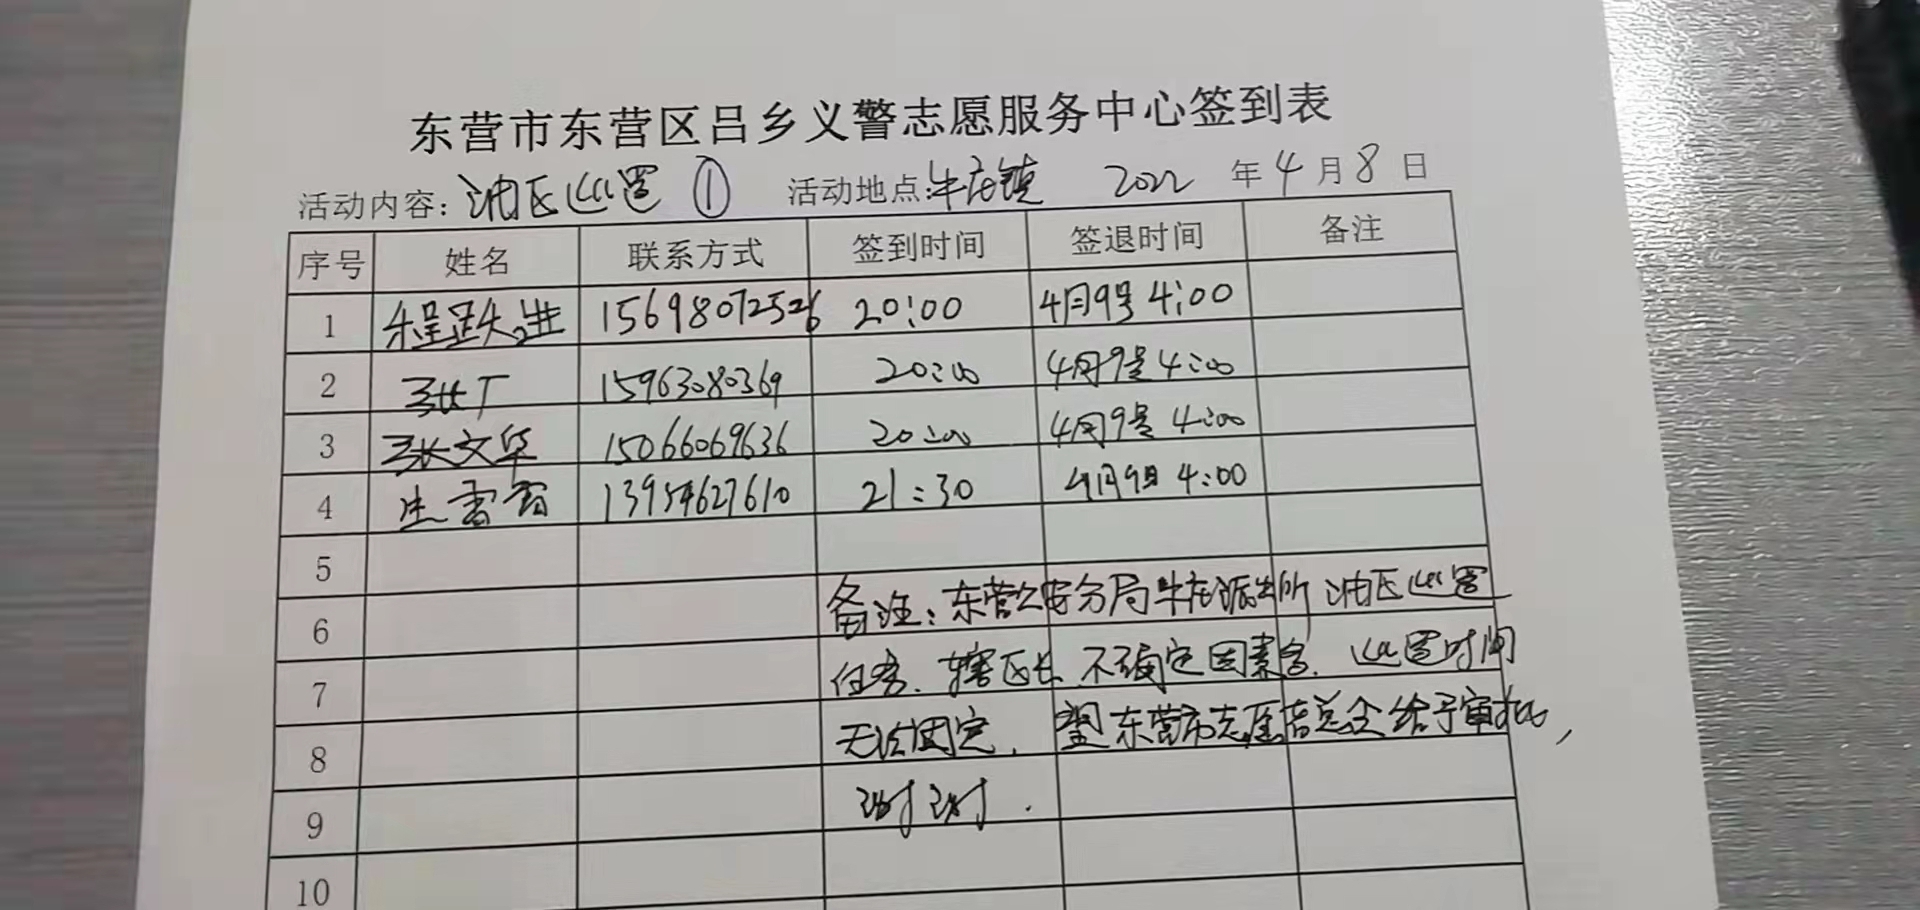 东营市东营区吕乡义警志愿服务中心签到表
活动内容: 油区巡逻 ① 活动地点: 牛庄镇 2022 年 4 月 8 日
序号 姓名 联系方式 签到时间 签退时间 备注
1 程跃进 15698072526 20:00 4月9号 4:00
2 张广 15963080369 20:00 4月9号 4:00
3 张文华 15066069636 20:00 4月9号 4:00
4 生雷雷 13954627610 21:30 4月9日 4:00
5
备注: 东营公安分局牛庄派出所 油区巡逻
6
任务. 辖区长 不确定因素多. 巡逻时间
7
无法固定. 望东营市志愿者总会给予审批,
8
谢谢.
9
10